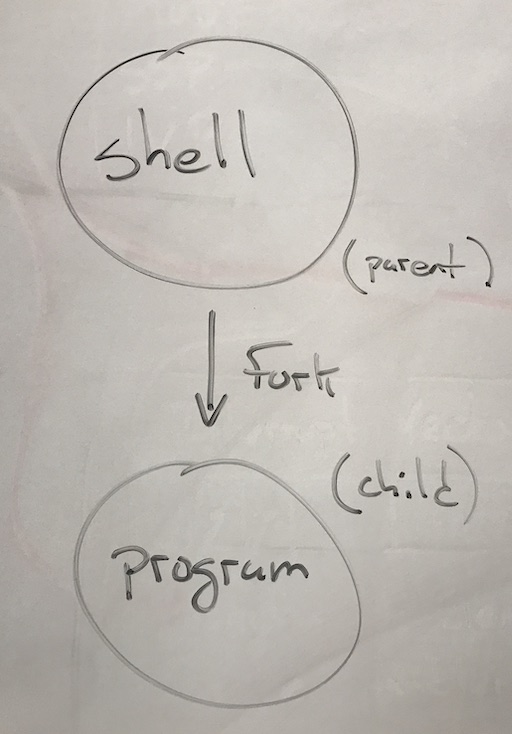 shell
(parent)
fork
(child)
program